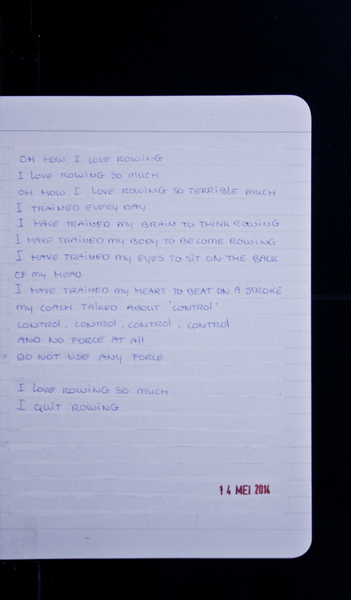 OH HOW I LOVE ROWING
I LOVE ROWING SO MUCH
OH HOW I LOVE ROWING SO TERRIBLE MUCH
I TRAINED EVERY DAY
I HAVE TRAINED MY BRAIN TO THINK ROWING
I HAVE TRAINED MY BODY TO BECOME ROWING
I HAVE TRAINED MY EYES TO SIT ON THE BACK
OF MY HEAD
I HAVE TRAINED MY HEART TO BEAT ON A STROKE
MY COACH TALKED ABOUT 'CONTROL'
CONTROL, CONTROL, CONTROL, CONTROL
AND NO FORCE AT All
DO NOT USE ANY FORCE
I LOVE ROWING SO MUCH
I QUIT ROWING
1 4 MEI 2014